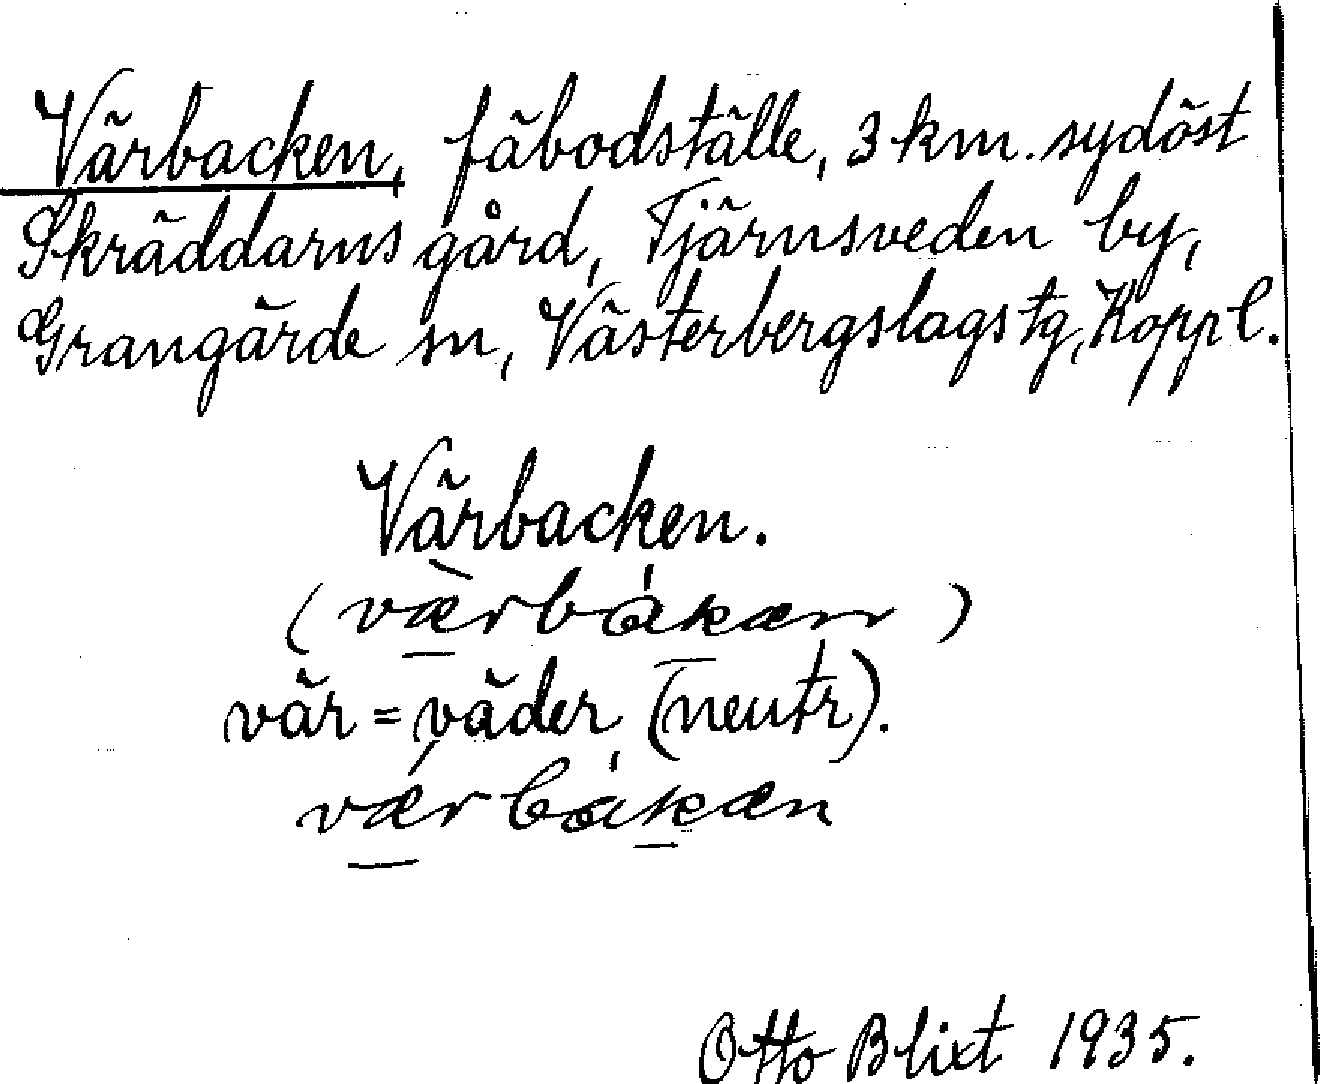 Värbacken, fäbodställe, 3 km. sydöst
Skräddarns gård, Tjärnsveden by,
Grangärde sn, Västerbergslags tg, Kopp l.
Värbacken.
(værbakæn)
vär = väder (neutr).
værbakæn
Otto Blixt 1935.